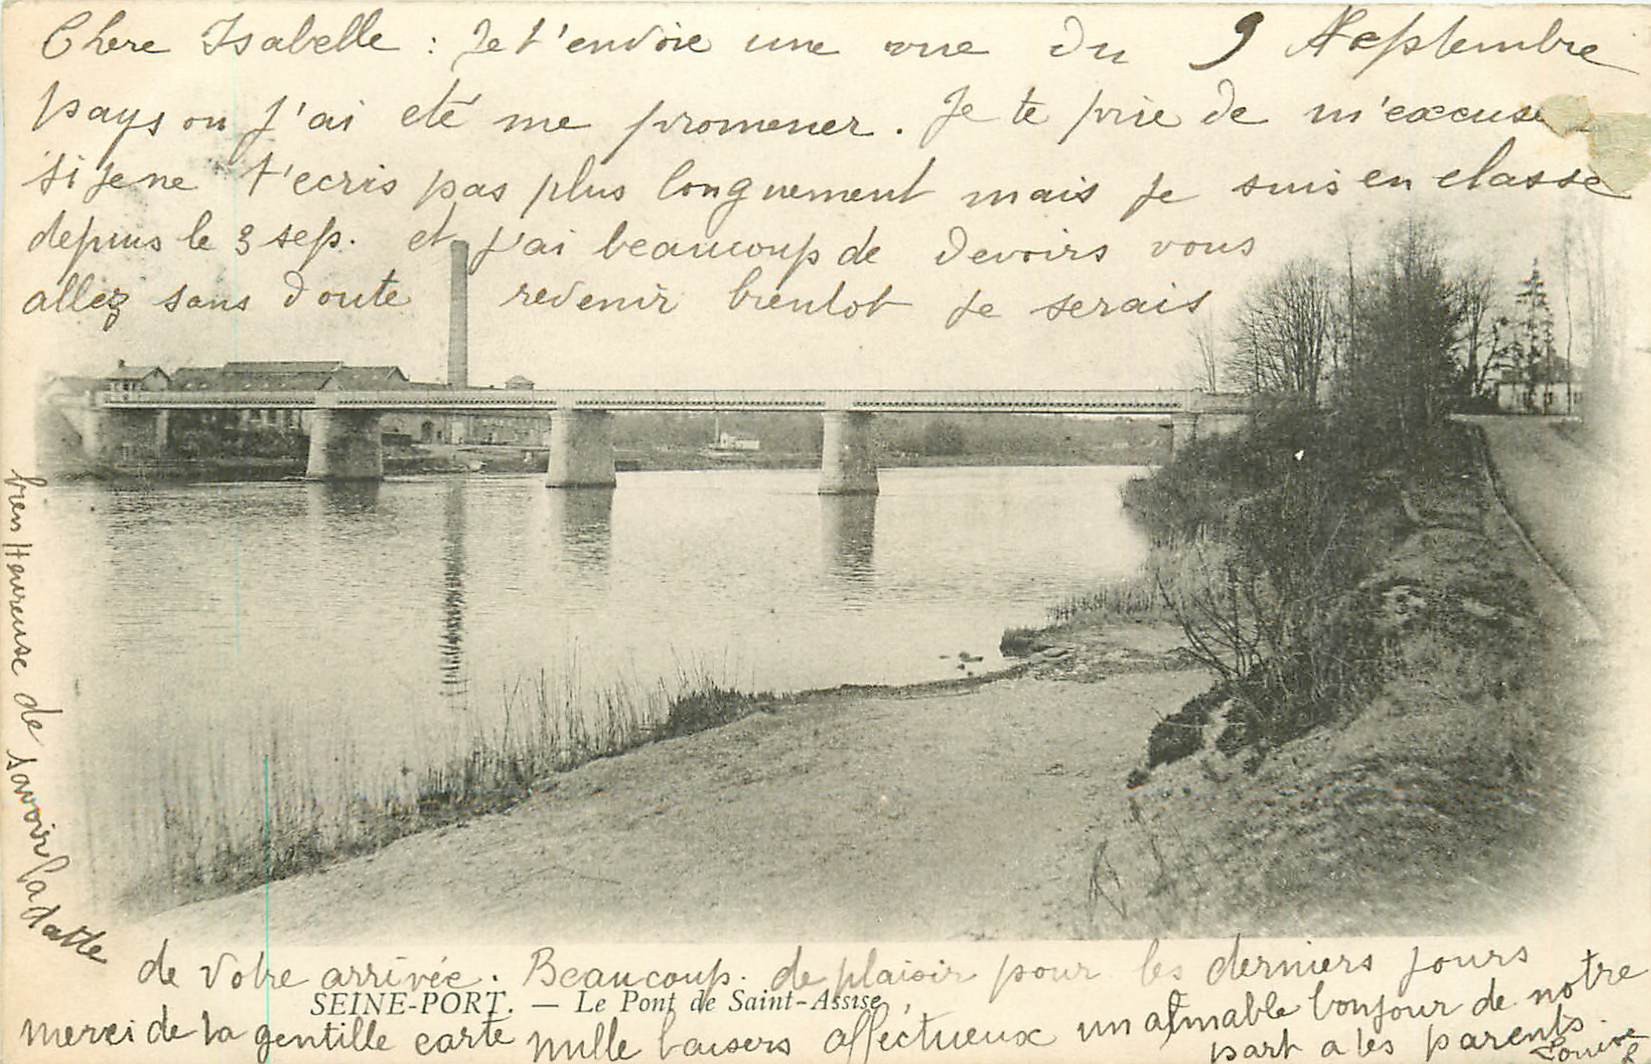 9 Septembre
Chere Isabelle : Je t'envoie une vue du
pays ou J'ai eté me promener. Je te prie de m'excuse
si je ne t'ecris pas plus longuement mais je suis en classe
depuis le 3 sep. et j'ai beaucoup de devoirs vous
allez sans doute revenir bientot je serais
bien Heureuse de savoir la datte
de votre arrivée. Beaucoup de plaisir pour les derniers jours
SEINE-PORT. — Le Pont de Saint-Assise
merci de la gentille carte mille baisers affectueux un aimable bonjour de notre
part a tes parents
Louise